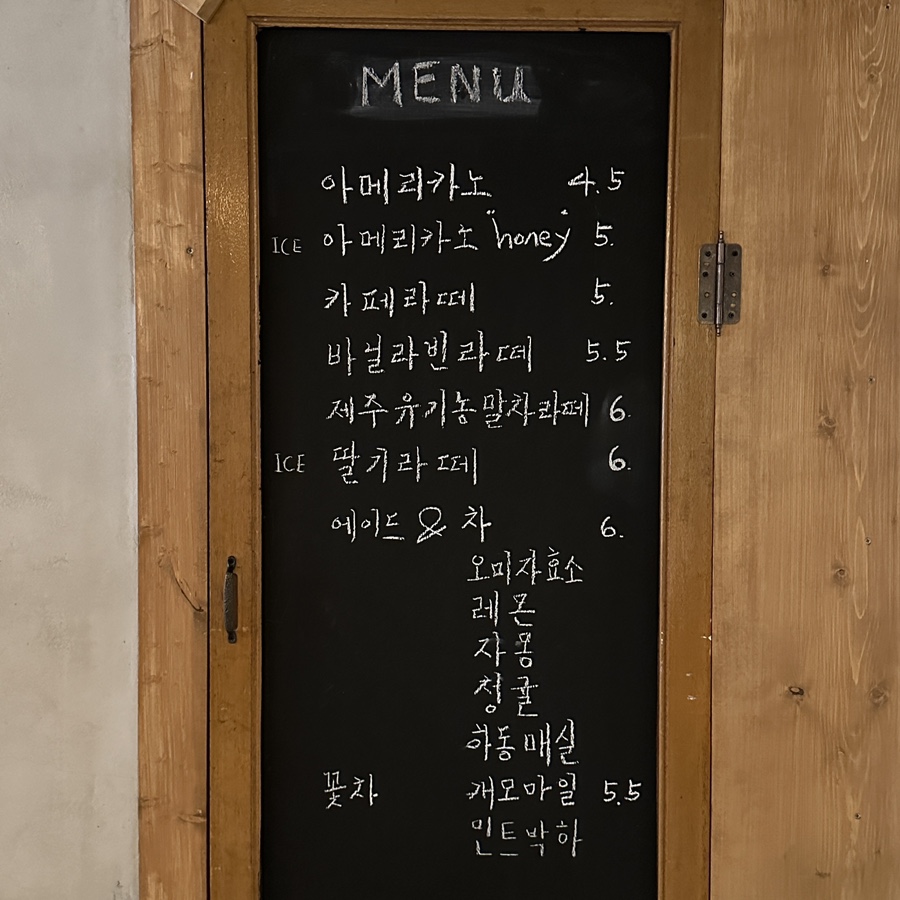 MENU
아메리카노 4.5
ICE 아메리카노 "honey" 5.
카페라떼 5.
바닐라빈라떼 5.5
제주유기농말차라떼 6.
ICE 딸기라떼 6.
에이드 & 차 6.
오미자효소
레몬
자몽
청귤
하동매실
꽃차 캐모마일 5.5
민트박하